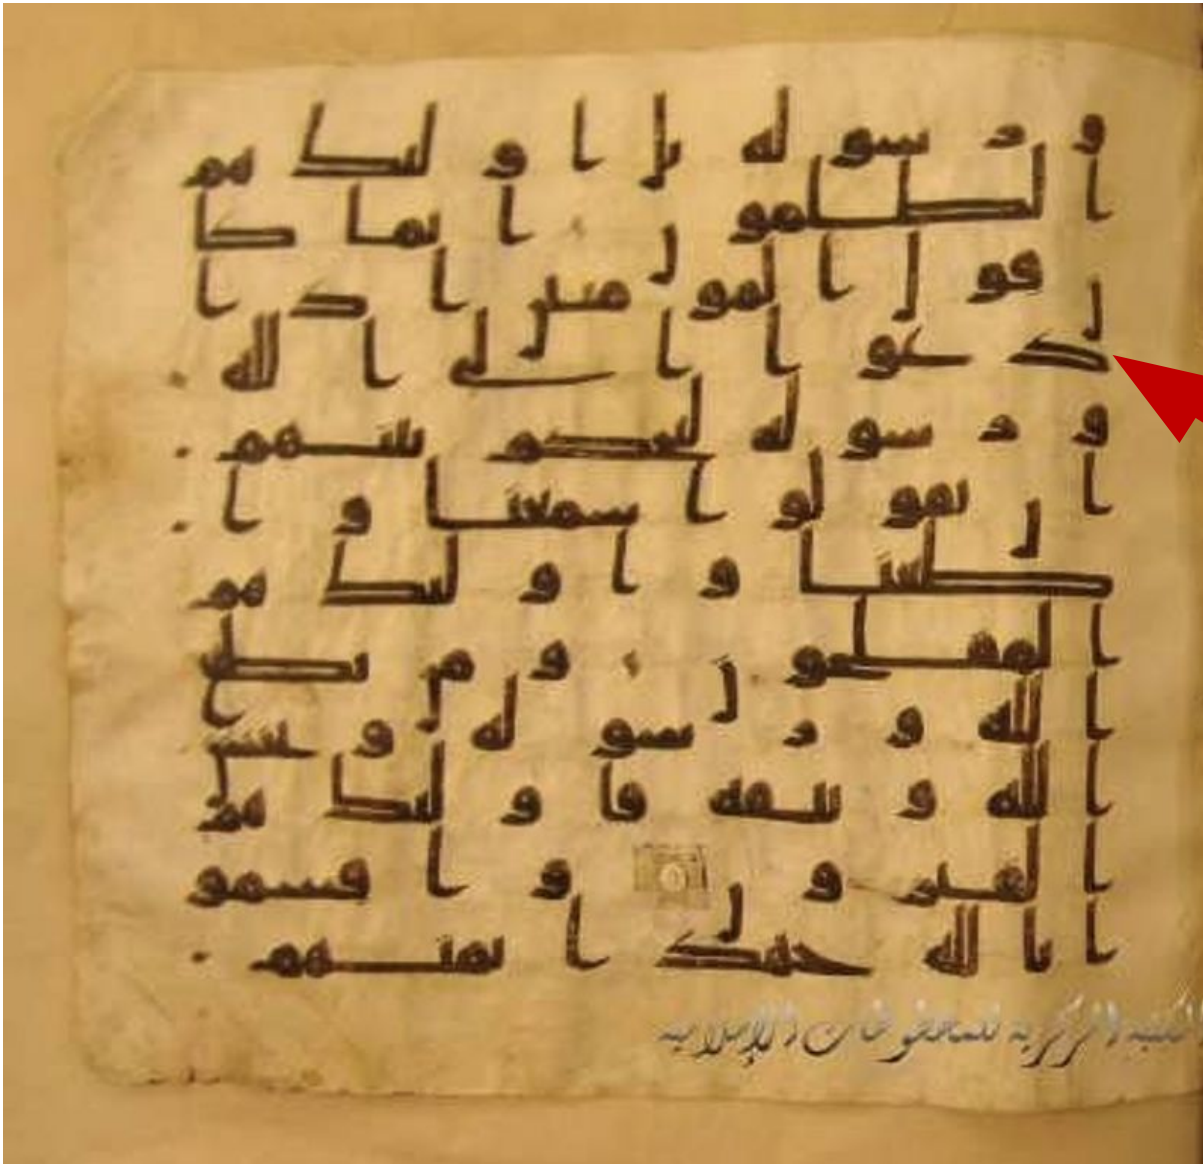 ورسوله بل اولئك هم
الظلمون انما كا
ن قول المومنين اذا
دعوا الى الله
ورسوله ليحكم بينهم
ان يقولوا سمعنا وا
طعنا واولئك هم
المفلحون ومن يطع
الله ورسوله ويخش
الله ويتقه فاولئك هم
الفيزون واقسمو
ا بالله جهد ايمنهم
المكتبة المركزية للمخطوطات الإسلامية